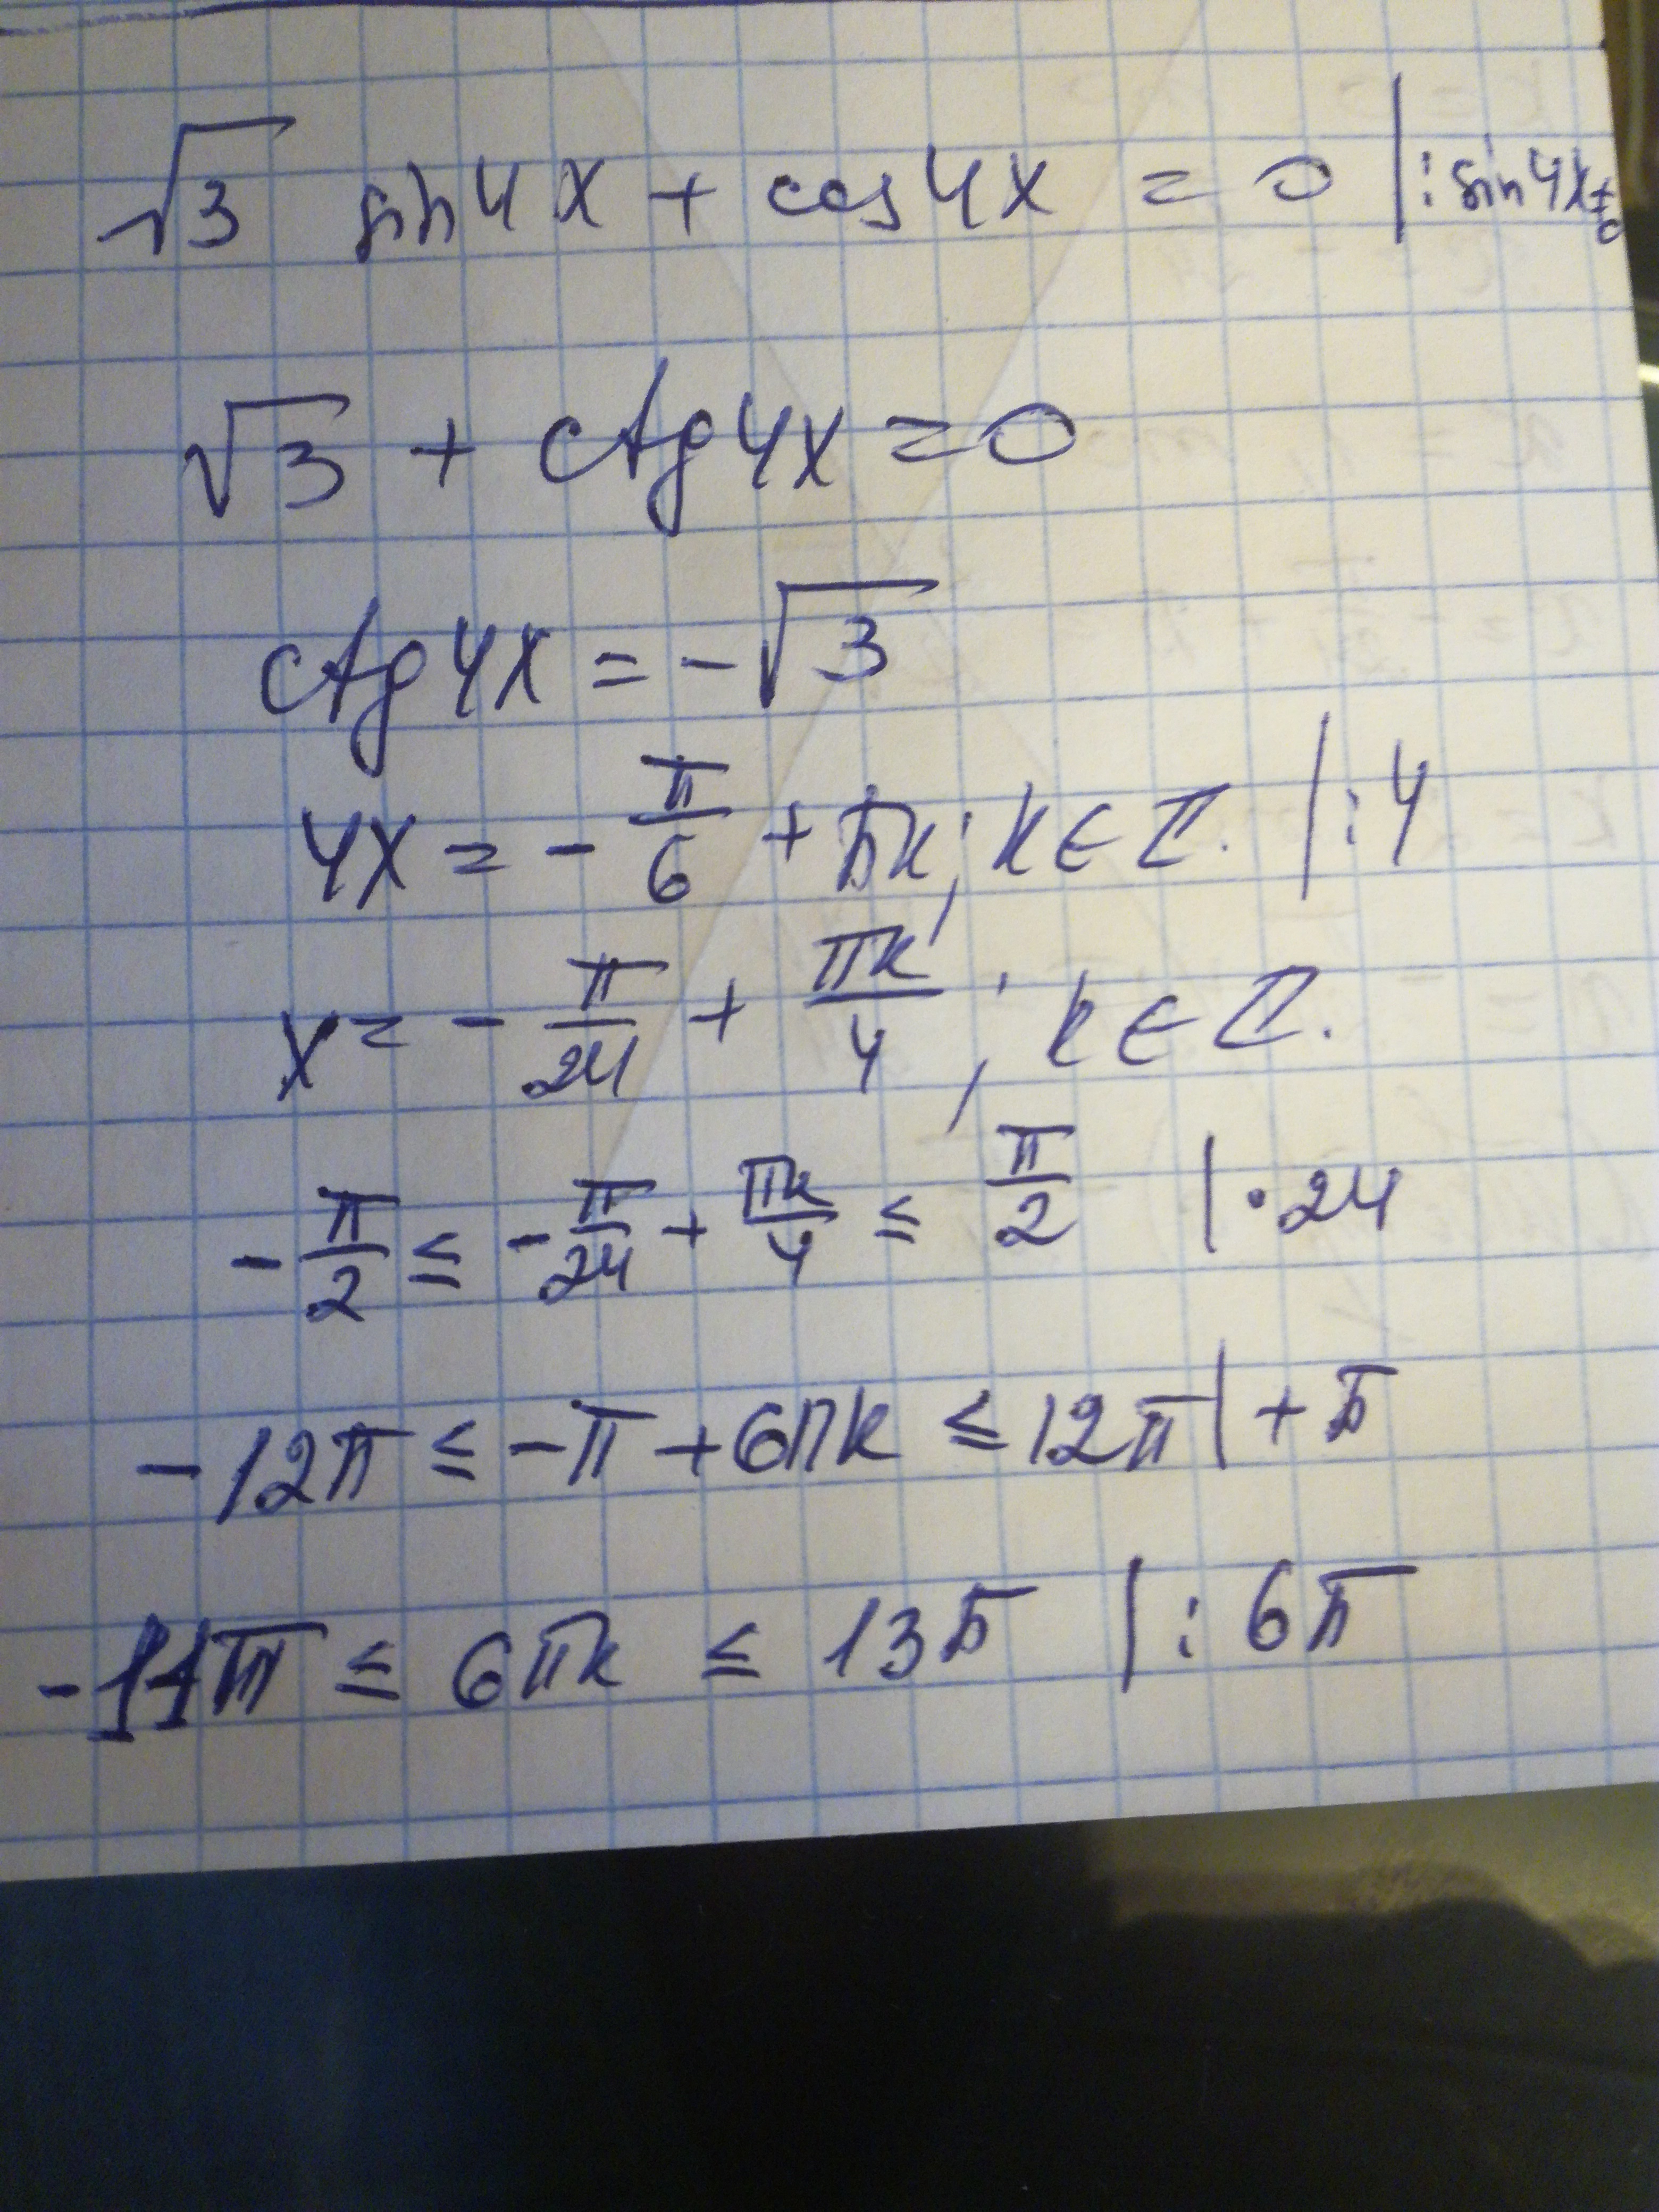 √3 sin4x + cos4x = 0 |: sin4x≠0
√3 + ctg4x = 0
ctg4x = -√3
4x = -π/6 + πk; k∈Z. |:4
x = -π/24 + πk/4; k∈Z.
-π/2 ≤ -π/24 + πk/4 ≤ π/2 |·24
-12π ≤ -π + 6πk ≤ 12π | + π
-11π ≤ 6πk ≤ 13π |: 6π